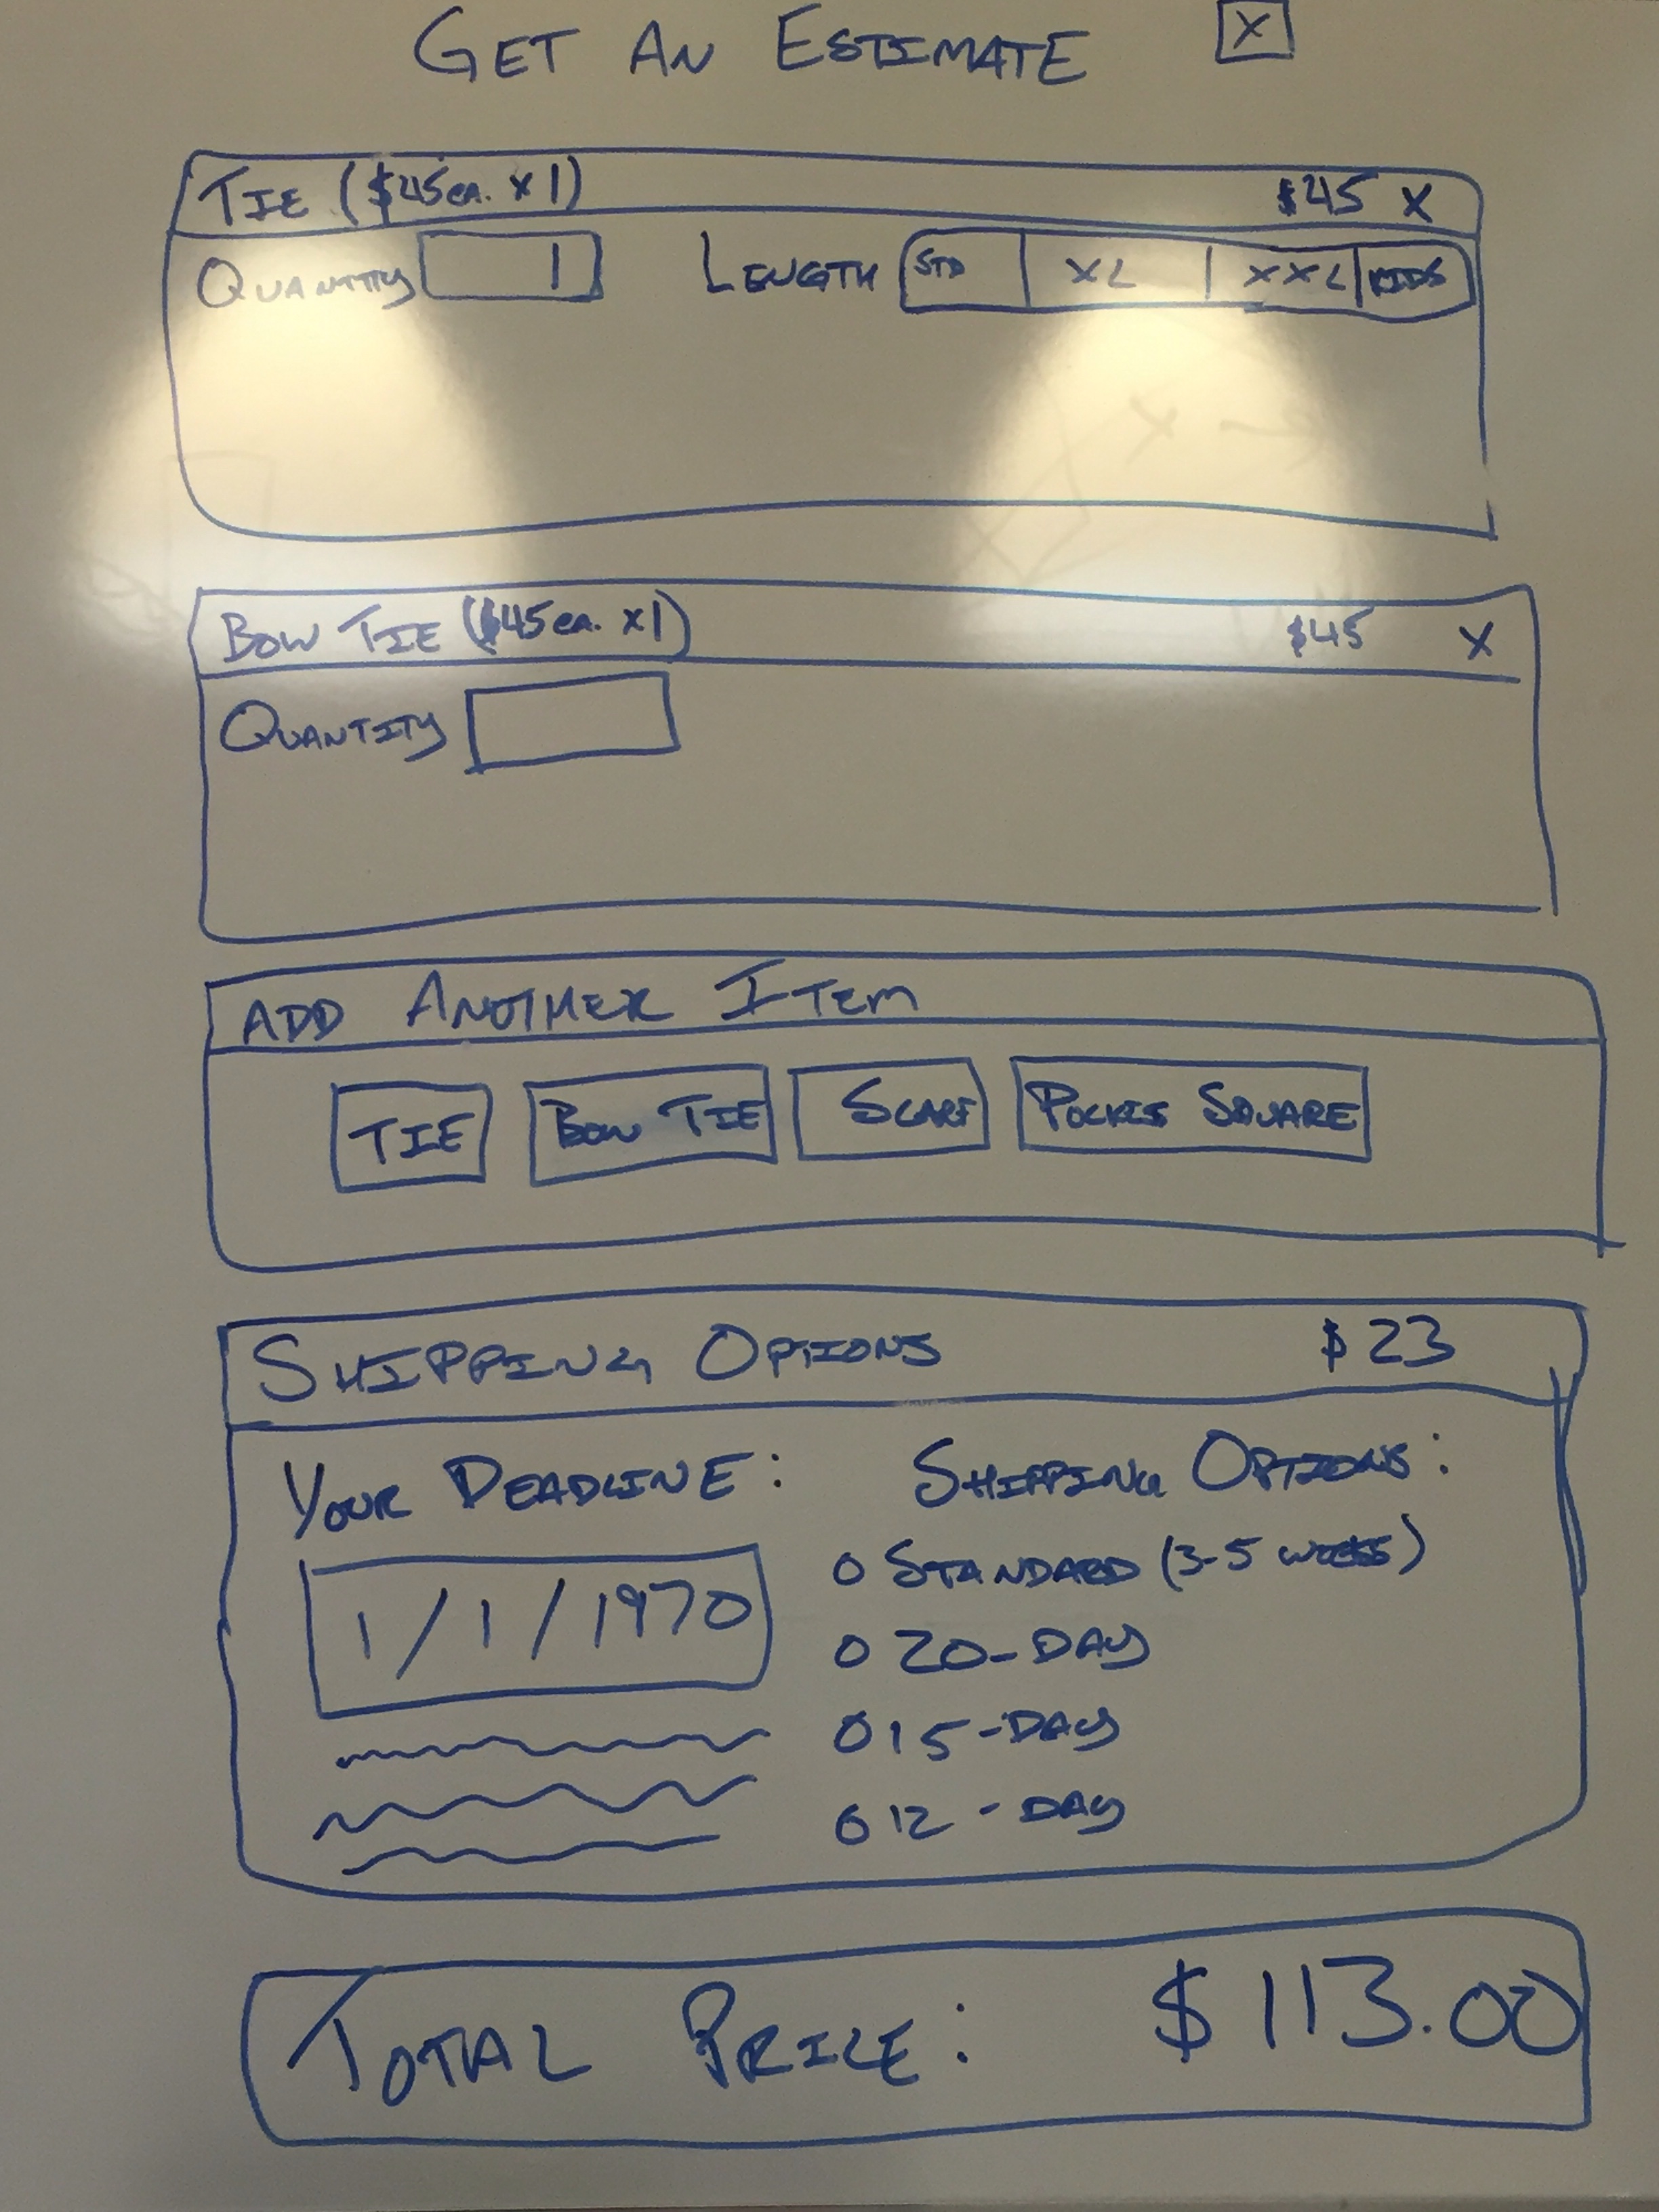 GET AN ESTIMATE X
TIE ($45ea. x1) $45 X
QUANTITY 1 LENGTH STD XL XXL KIDS
BOW TIE ($45ea. x1) $45 X
QUANTITY
ADD ANOTHER ITEM
TIE BOW TIE SCARF POCKET SQUARE
SHIPPING OPTIONS $23
YOUR DEADLINE: SHIPPING OPTIONS:
1/1/1970
O STANDARD (3-5 WEEKS)
O 20-DAY
O 15-DAY
O 12-DAY
TOTAL PRICE: $113.00